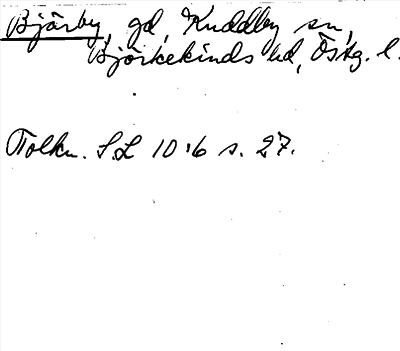 Bjärby, gd, Kuddby sn,
Björkekinds hd, Östg. l.
Tolkn. S.L 10:6 s. 27.